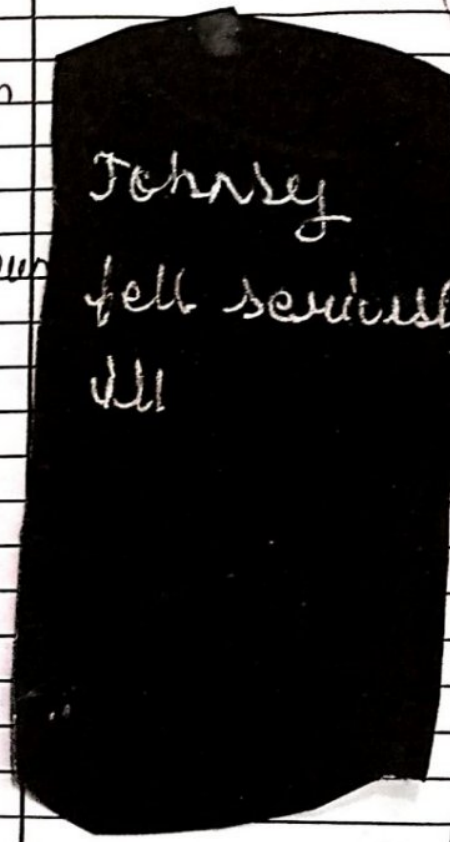 Johnsy
fell seriousl
ill